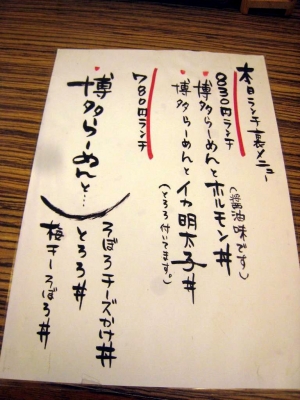 本日ランチ裏メニュー
830円ランチ
・博多らーめんとホルモン丼
(醤油味です)
・博多らーめんとイカ明太子丼
(とろろ付いてます。)
780円ランチ
・博多らーめんと…
そぼろチーズかけ丼
とろろ丼
梅チーそぼろ丼